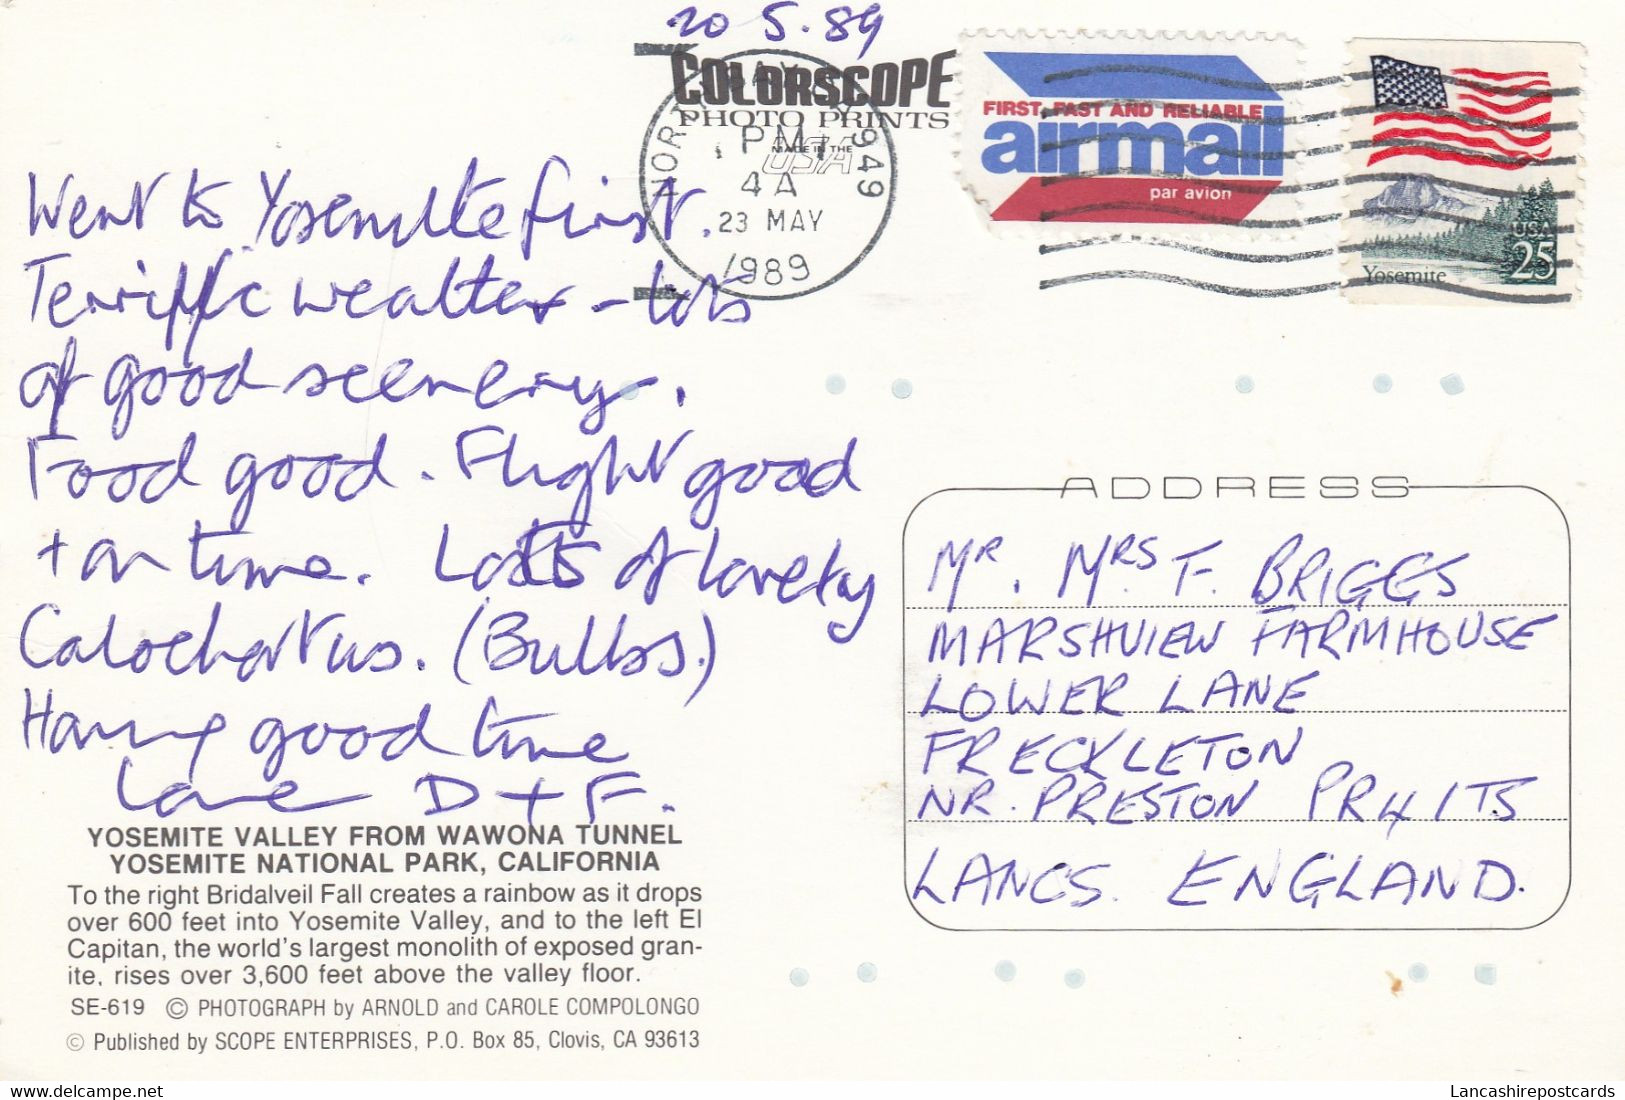 20 5.89
COLORSCOPE
PHOTO PRINTS
MADE IN THE
USA
PM
4A
23 MAY
1989
949
FIRST, FAST AND RELIABLE
airmail
par avion
USA
25
Yosemite
Went to Yosemite first.
Terriffic weather - lots
of good scenery.
Food good. Flight good
+ on time. Lots of lovely
Calochortus. (Bulbs.)
Having good time
Love D + F.
YOSEMITE VALLEY FROM WAWONA TUNNEL
YOSEMITE NATIONAL PARK, CALIFORNIA
To the right Bridalveil Fall creates a rainbow as it drops
over 600 feet into Yosemite Valley, and to the left El
Capitan, the world's largest monolith of exposed gran-
ite, rises over 3,600 feet above the valley floor.
SE-619 © PHOTOGRAPH by ARNOLD and CAROLE COMPOLONGO
© Published by SCOPE ENTERPRISES, P.O. Box 85, Clovis, CA 93613
ADDRESS
MR. MRS F. BRIGGS
MARSHVIEW FARMHOUSE
LOWER LANE
FRECKLETON
NR. PRESTON PR4 1TS
LANCS. ENGLAND.
Lancashirepostcards